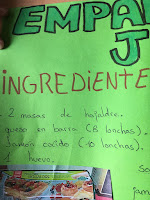 EMPA
J
INGREDIENTE
. 2 masas de hojaldre.
queso en barra (8 lonchas).
Jamón cocido (10 lonchas).
1 huevo.
So
jam